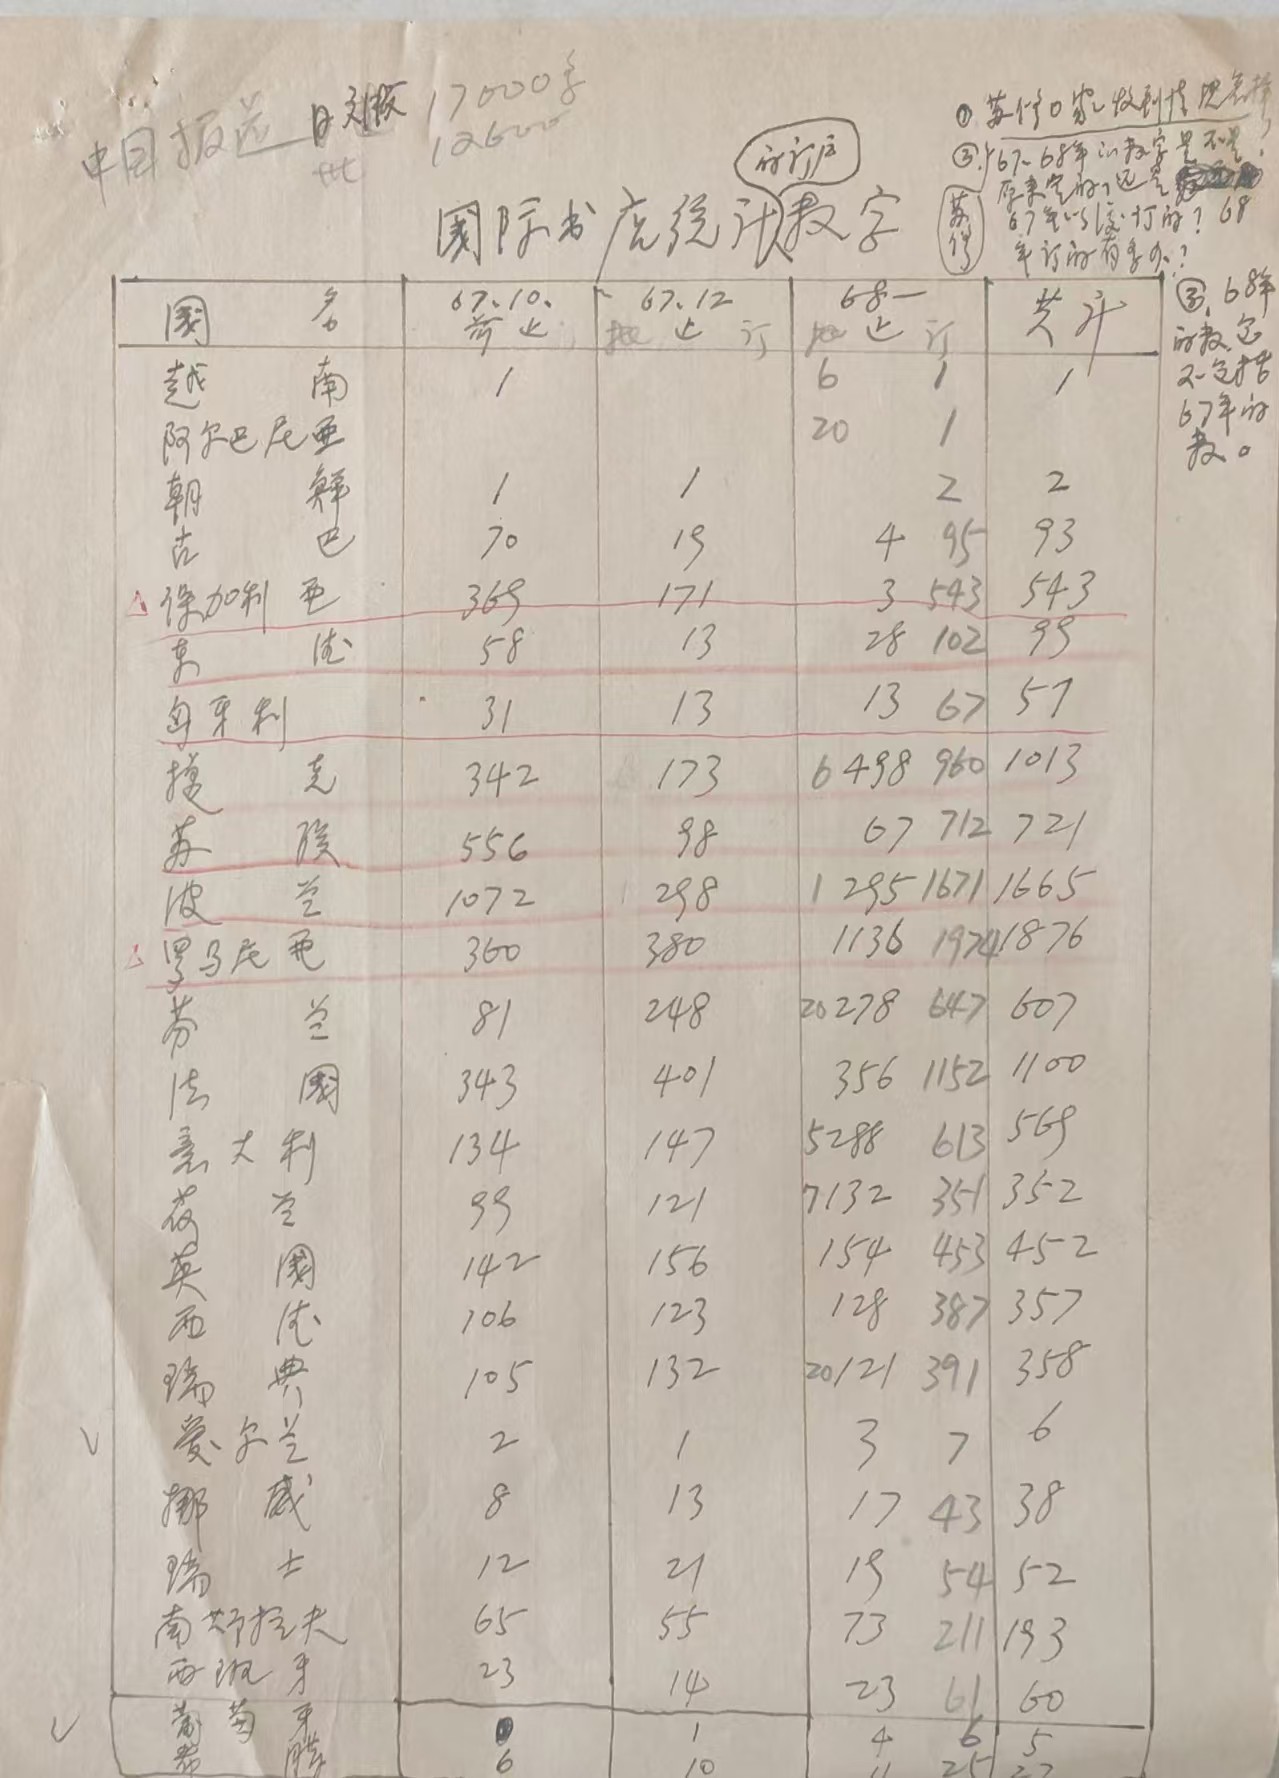 中国报道 17000多
世 12600
的订户
国际书店统计数字
① 苏修
②、67、68年的数字是不是
原来定的,还是
67年以后订的? 68
年订的有多少?
苏修
③、68年
的数包
不包括
67年的
数。
國名 67.10.前止 67.12止 68—止 共计
批 订 批 订
越南 1 6 1 1
阿尔巴尼亚 20 1
朝鲜 1 1 2 2
古巴 70 19 4 95 93
△ 保加利亚 369 171 3 543 543
东德 58 13 28 102 99
匈牙利 31 13 13 67 57
捷克 342 173 6 498 960 1013
苏联 556 98 67 712 721
波兰 1072 298 1 295 1671 1665
△ 罗马尼亚 360 380 1136 1974 1876
芬兰 81 248 20 278 647 607
法國 343 401 356 1152 1100
意大利 134 147 5 288 613 569
荷兰 99 121 7 132 351 352
英國 142 156 154 453 452
西德 106 123 128 387 357
瑞典 105 132 20 121 391 358
爱尔兰 2 1 3 7 6
挪威 8 13 17 43 38
瑞士 12 21 19 54 52
南斯拉夫 65 55 73 211 193
西班牙 23 14 23 61 60
葡萄牙 1 4 6 5
希腊 6 10 11 25 27